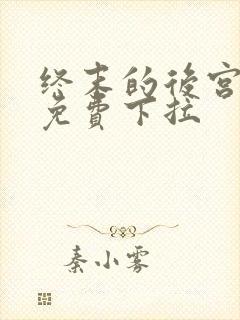 终末的後宫
免費下拉
秦小雾